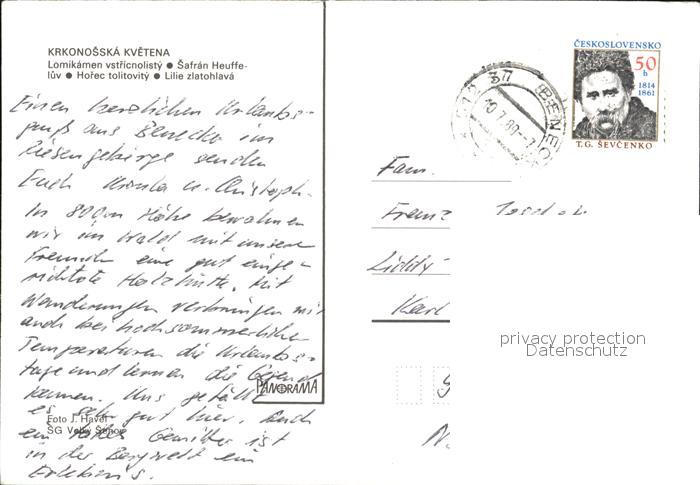 KRKONOŠSKÁ KVĚTENA
Lomikámen vstřícnolistý ● Šafrán Heuffe-
lův ● Hořec tolitovitý ● Lilie zlatohlavá
Einen herzlichen Urlaubs-
gruß aus Benecko im
Riesengebirge senden
Euch u. Christoph.
In 800 m Höhe bewohnen
wir im Wald mit unseren
Freunden eine gut einge-
richtete Holzhütte. Mit
Wanderungen verbringen wir
auch bei hochsommerlichen
Temperaturen die Urlaubs-
tage und lernen die Gegend
kennen. Uns gefällt
es sehr gut hier. Auch
ein Gewitter ist
in der Bergwelt ein
Erlebnis.
PANORAMA
Foto J. Havel
ČESKOSLOVENSKO
50
h
1814
1861
T. G. ŠEVČENKO
37
BENEC
Fam.
Franz
Liddy
Karl
privacy protection
Datenschutz